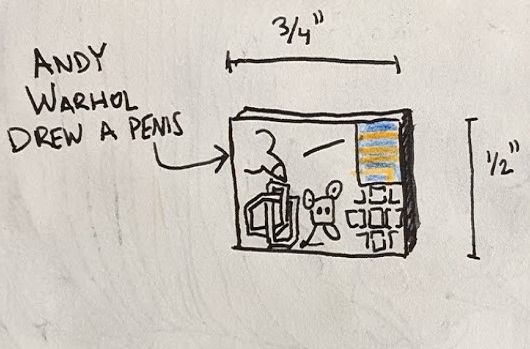 3/4"
ANDY
WARHOL
DREW A PENIS
1/2"